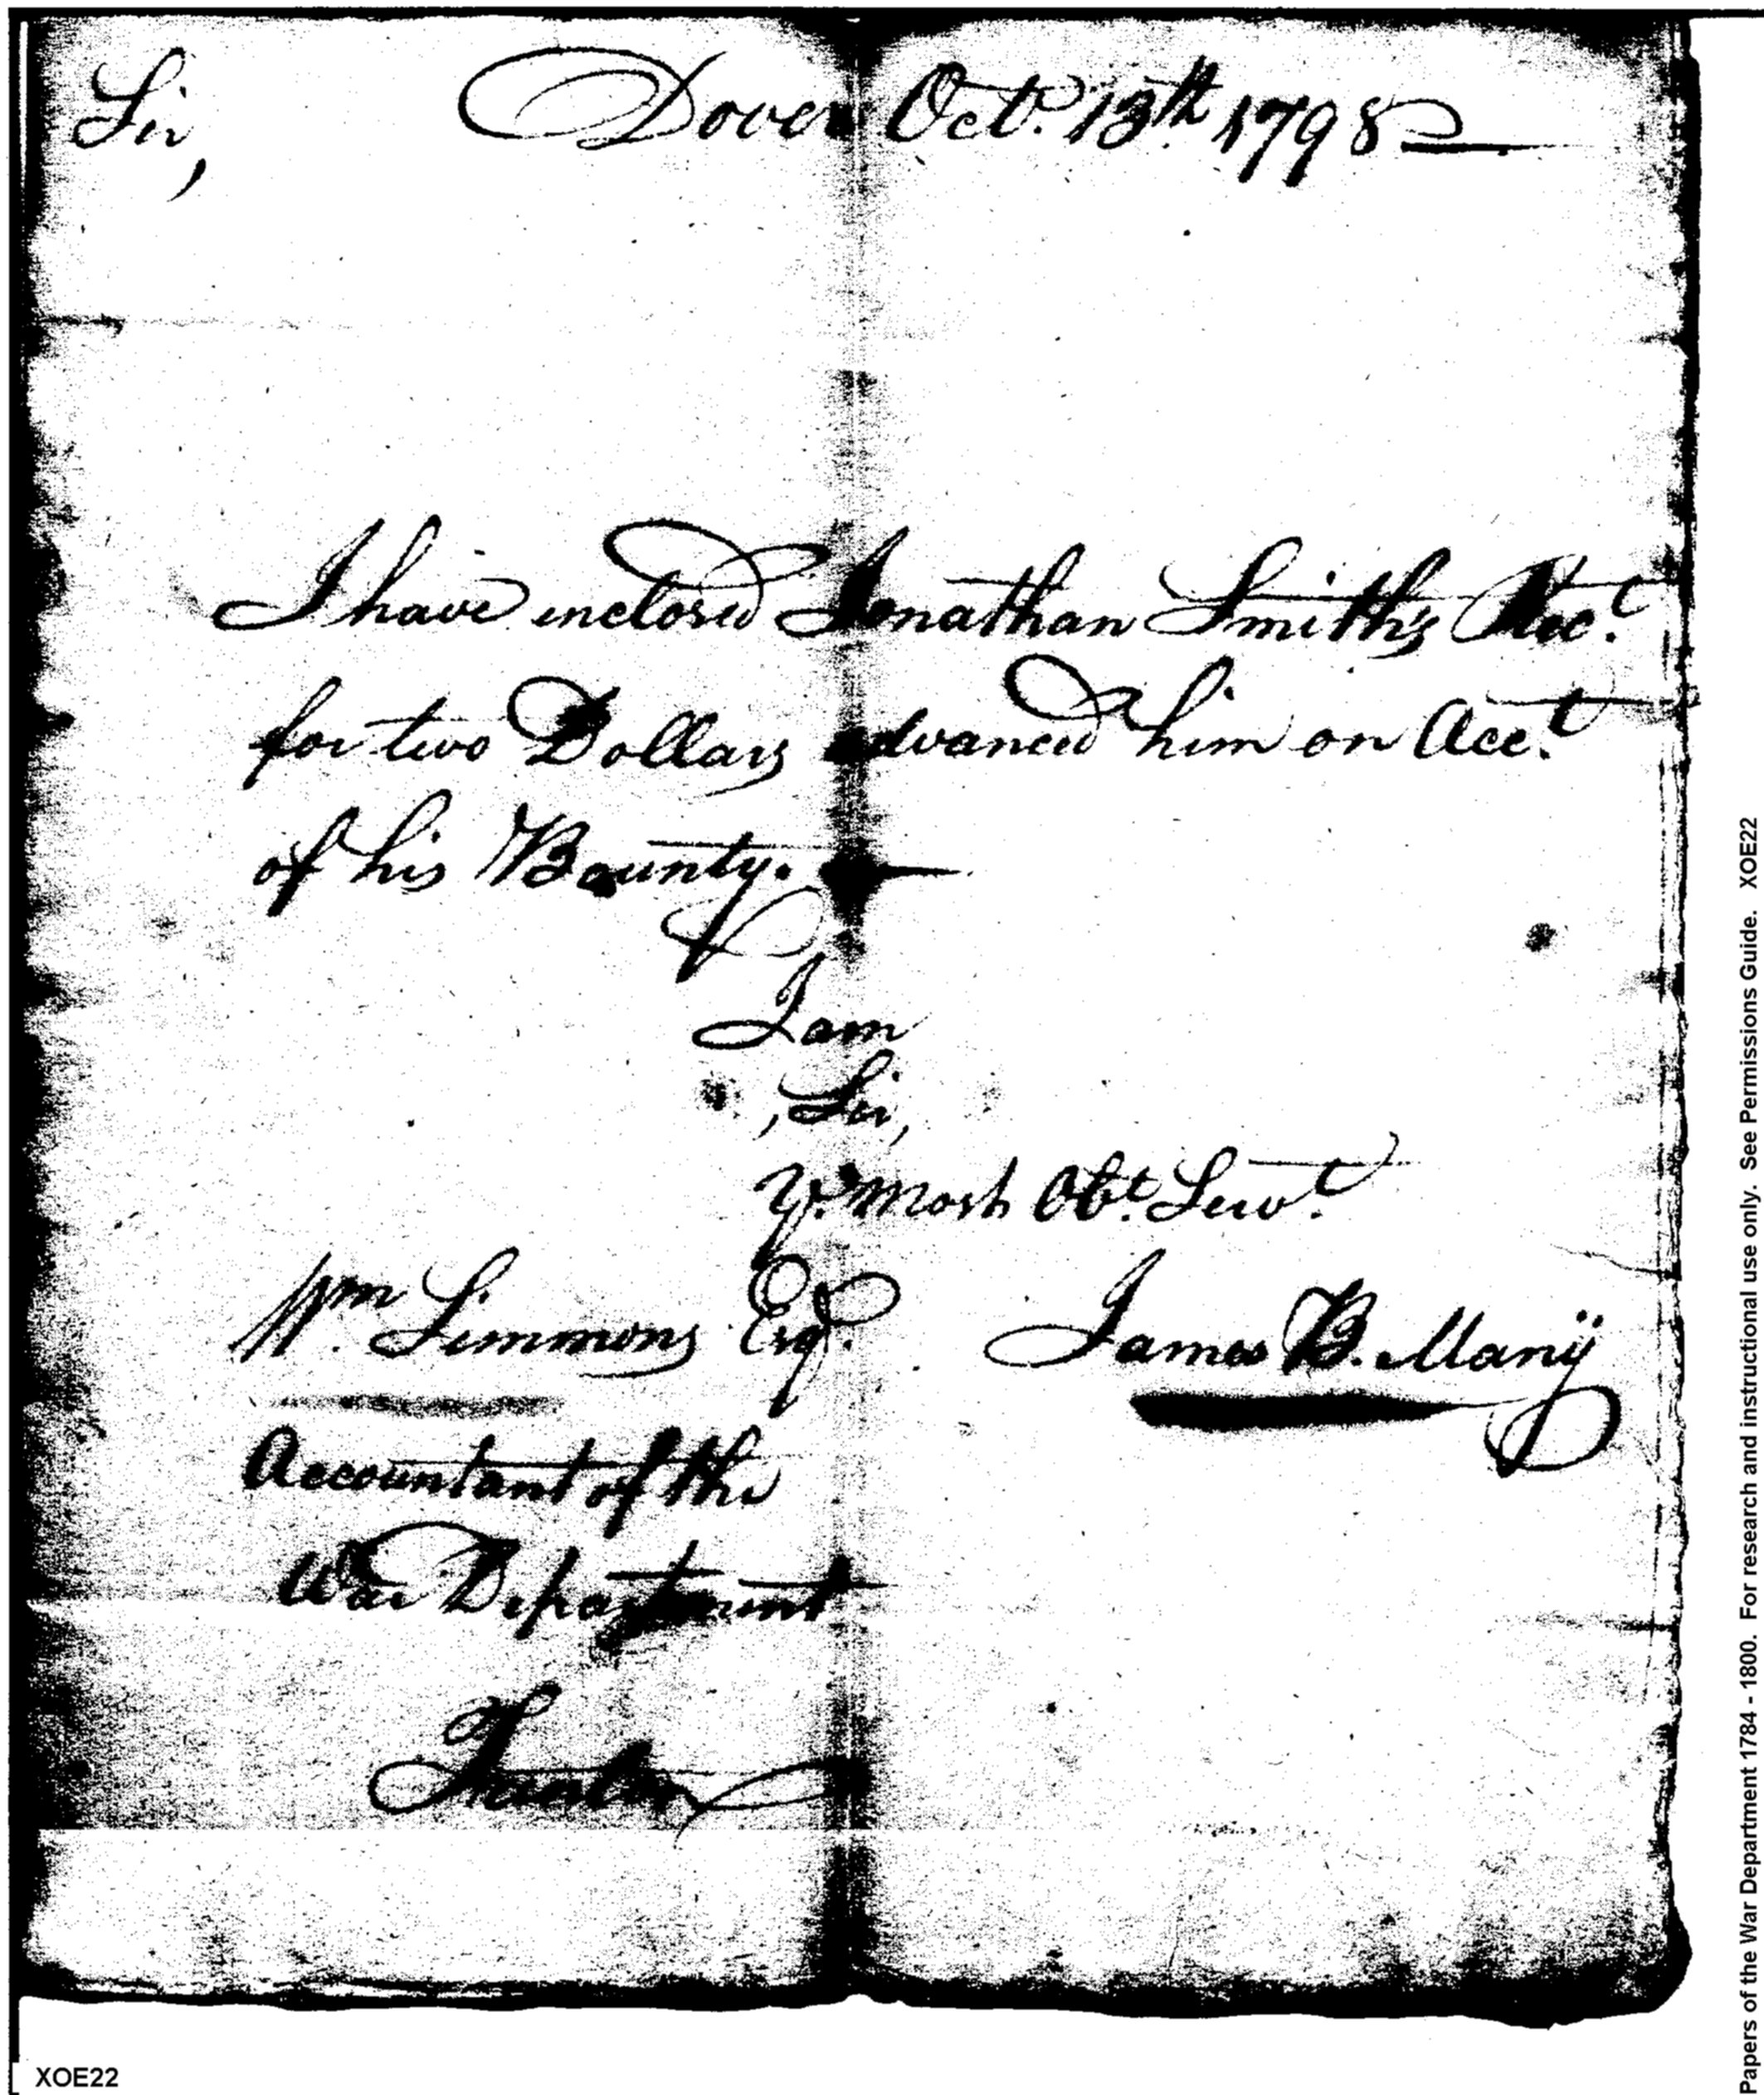 Sir, Dover Oct. 13th 1798
I have inclosed Jonathan Smith's Rec.t
for two Dollars advanced him on Acc.t
of his Bounty.
I am
, Sir,
Yr. most Obt. Servt.
Wm Simmons Esqr. James B. Many
Accountant of the
War Department
Trenton
Papers of the War Department 1784 - 1800. For research and instructional use only. See Permissions Guide. XOE22
XOE22